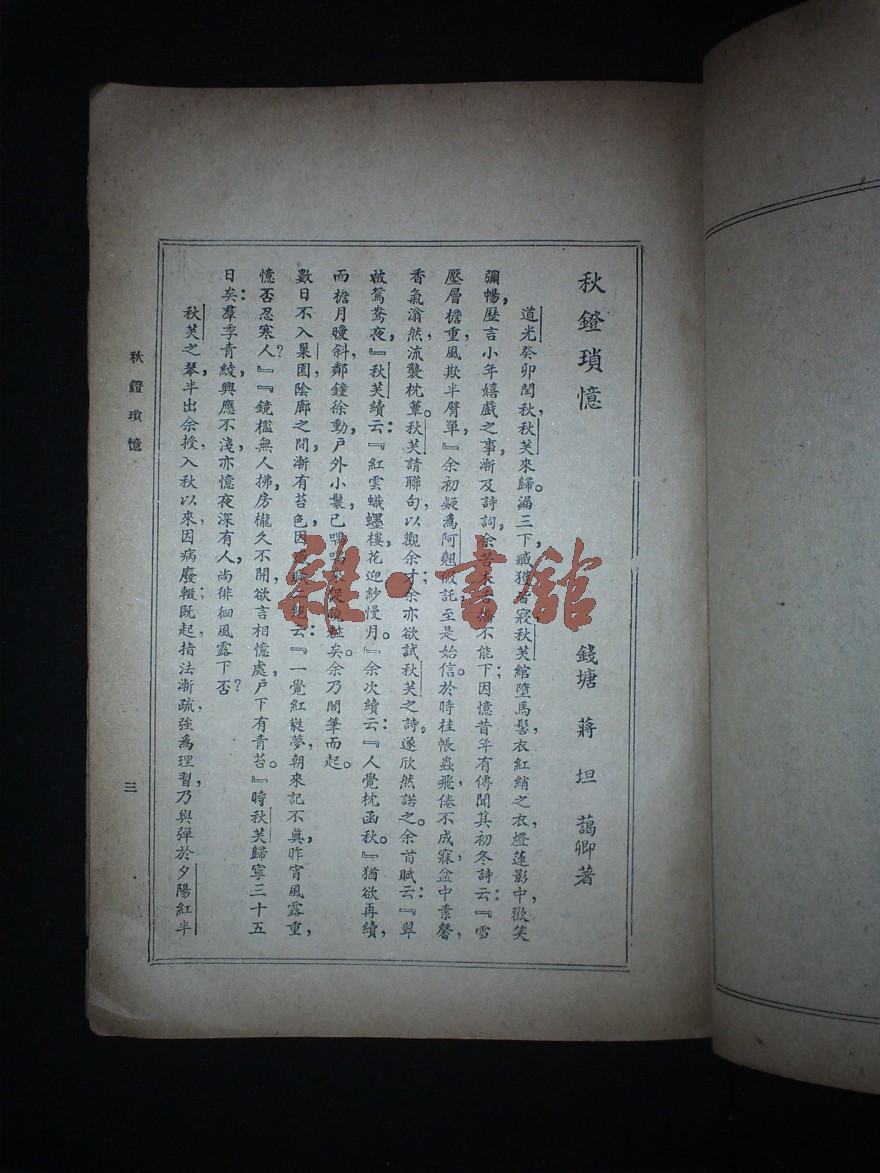 秋鐙瑣憶
錢塘 蔣坦 藹卿著
道光癸卯閏秋，秋芙來歸。漏三下，臧獲皆寢，秋芙綰墮馬髻，衣紅綃之衣，燈蓮影中，歡笑
彌暢，歷言小年嬉戲之事，漸及詩詞，余苦 不能下；因憶昔年有傳聞其初冬詩云：『雪
壓層檐重，風欺半臂單。』余初疑為阿翹假託，至是始信。於時桂帳蟲飛，倦不成寐，盆中素馨，
香氣滃然，流襲枕簟。秋芙請聯句，以觀余才；余亦欲試秋芙之詩，遂欣然諾之。余首賦云：『翠
被鴛鴦夜，』秋芙續云：『紅雲䗾蟔樓。花迎紗幔月，』余次續云：『人覺枕函秋。』猶欲再續，
而檐月曖斜，鄰鐘徐動，戶外小鬟已喁喁來促曉粧矣。余乃閣筆而起。
數日不入巢園，陰廊之間，漸有苔色，因 二絕云：『一覺紅蕤夢，朝來記不真。昨宵風露重，
憶否忍寒人？』『鏡檻無人拂，房櫳久不開。欲言相憶處，戶下有青苔。』時秋芙歸寧三十五
日矣；羣季青綾，興應不淺，亦憶夜深有人，尚徘徊風露下否？
秋芙之琴，半出余授。入秋以來，因病廢輟；既起，指法漸疏，強為理習，乃與彈於夕陽紅半
秋鐙瑣憶
三
雜·書館